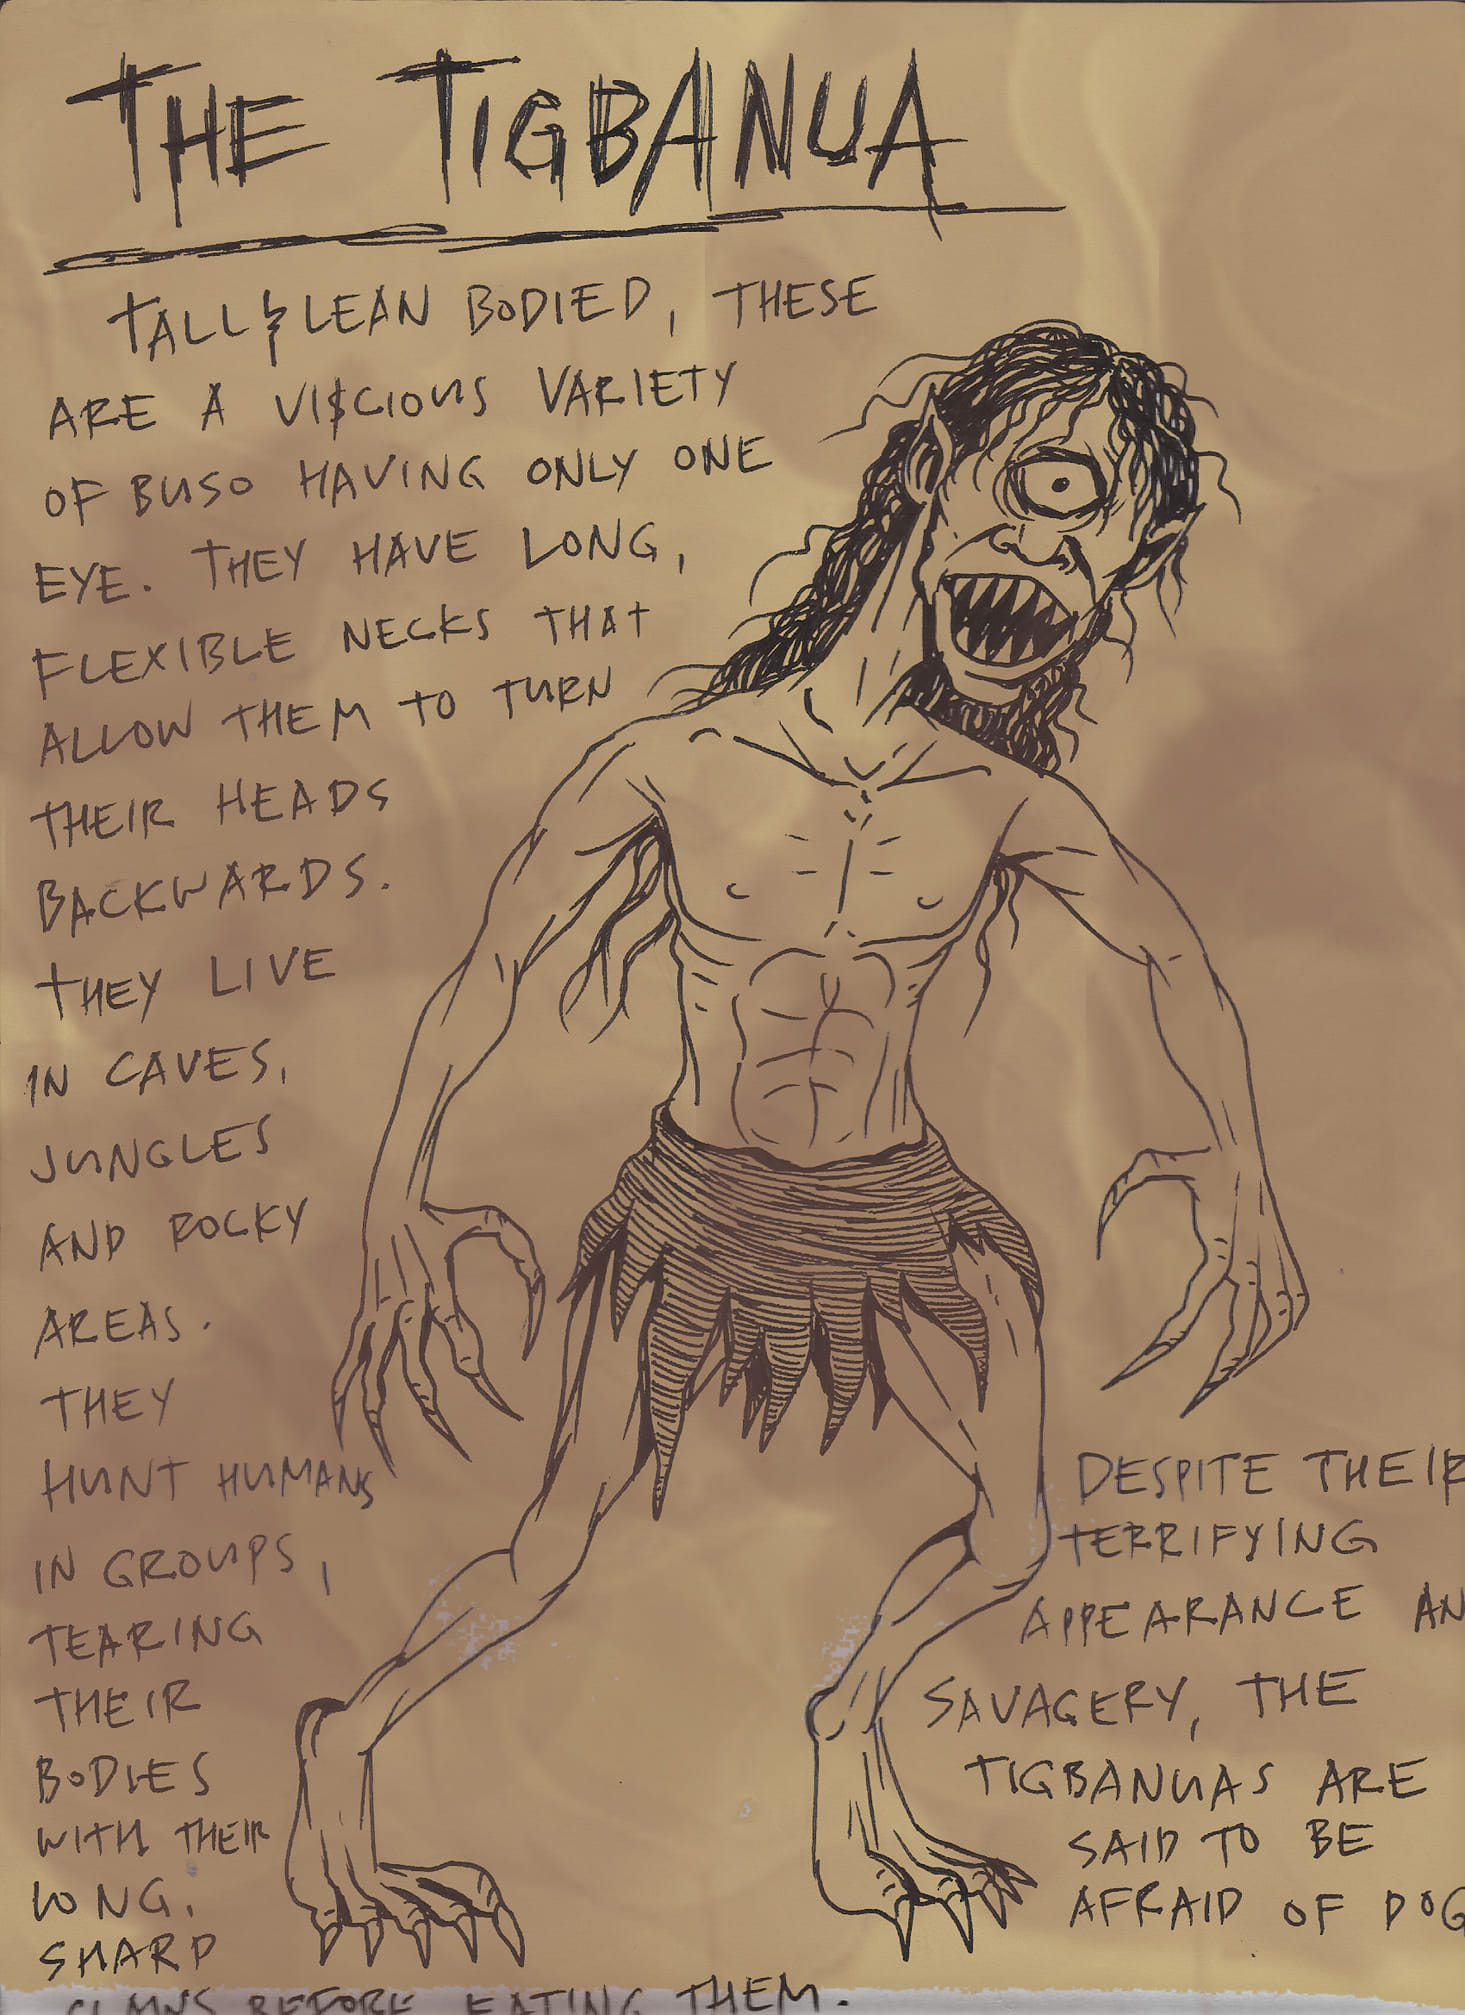 THE TIGBANUA
TALL & LEAN BODIED, THESE
ARE A VISCIOUS VARIETY
OF BUSO HAVING ONLY ONE
EYE. THEY HAVE LONG,
FLEXIBLE NECKS THAT
ALLOW THEM TO TURN
THEIR HEADS
BACKWARDS.
THEY LIVE
IN CAVES,
JUNGLES
AND ROCKY
AREAS.
THEY
HUNT HUMANS
IN GROUPS,
TEARING
THEIR
BODIES
WITH THEIR
LONG,
SHARP
CLAWS BEFORE EATING THEM.
DESPITE THEIR
TERRIFYING
APPEARANCE AN
SAVAGERY, THE
TIGBANUAS ARE
SAID TO BE
AFRAID OF DOG